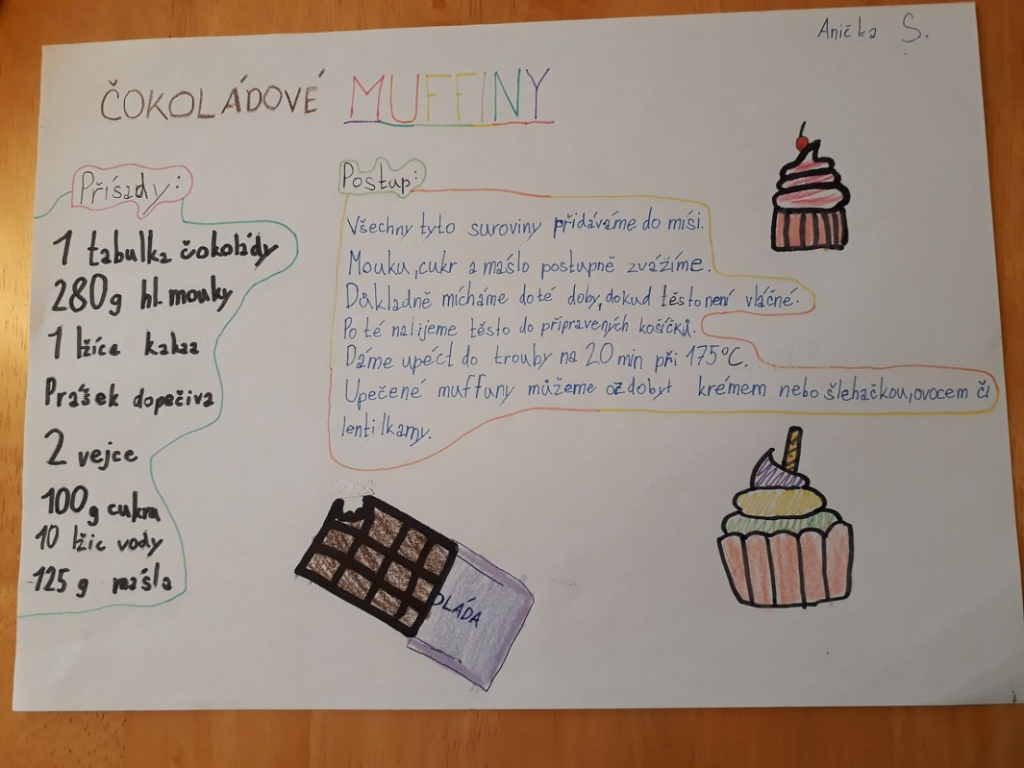 Anička S.
ČOKOLÁDOVÉ MUFFINY
Přísady:
1 tabulka čokolády
280g hl. mouky
1 lžíce kakaa
Prášek dopečiva
2 vejce
100g cukru
10 lžic vody
125 g másla
Postup:
Všechny tyto suroviny přidáváme do mísi.
Mouku, cukr a máslo postupně zvážíme.
Důkladně mícháme do té doby, dokud těsto není vláčné.
Po té nalijeme těsto do připravených košíčků.
Dáme upéct do trouby na 20 min při 175°C.
Upečené muffuny můžeme ozdobyt krémem nebo šlehačkou, ovocem či
lentilkamy.
OLÁDA